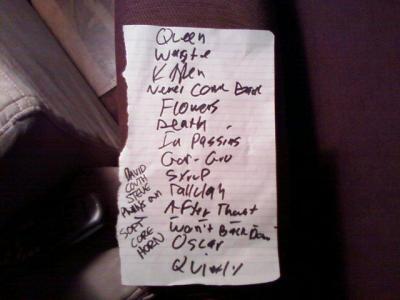 Queen
Waste
Kitten
Never Come Back
Flowers
Death
In Passing
Syrup
Tallulah
After That
Won't Back Down
Oscar
Quietly
DAVID
SOUTH
STEVE
SOFT
CORE
HORN